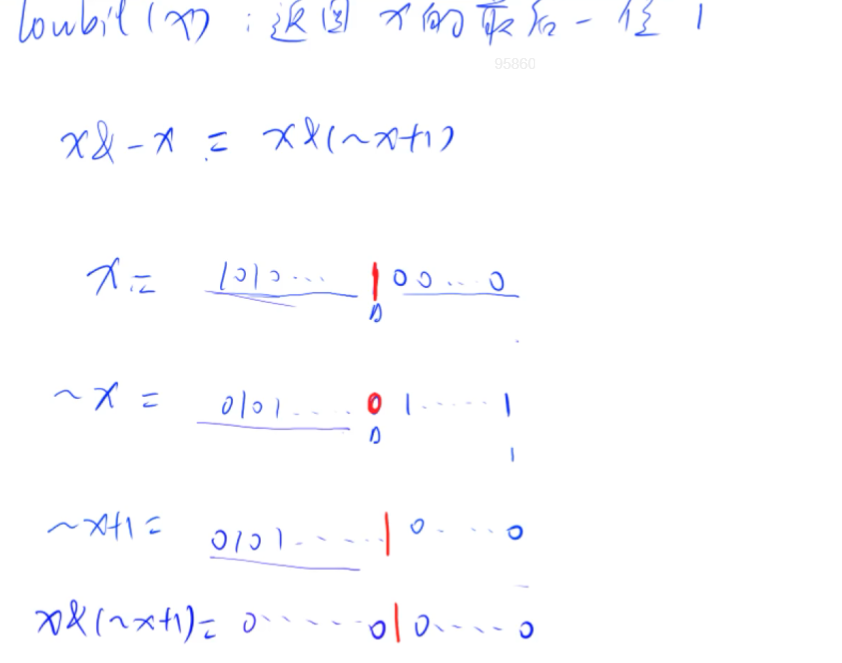 lowbit(x) : 返回 x的最后一位 1
95860
x&-x = x&(~x+1)
x = 1010... 100...0
~x = 0101.... 01.....1
1
~x+1 = 0101.....10....0
x&(~x+1) = 0.....010....0